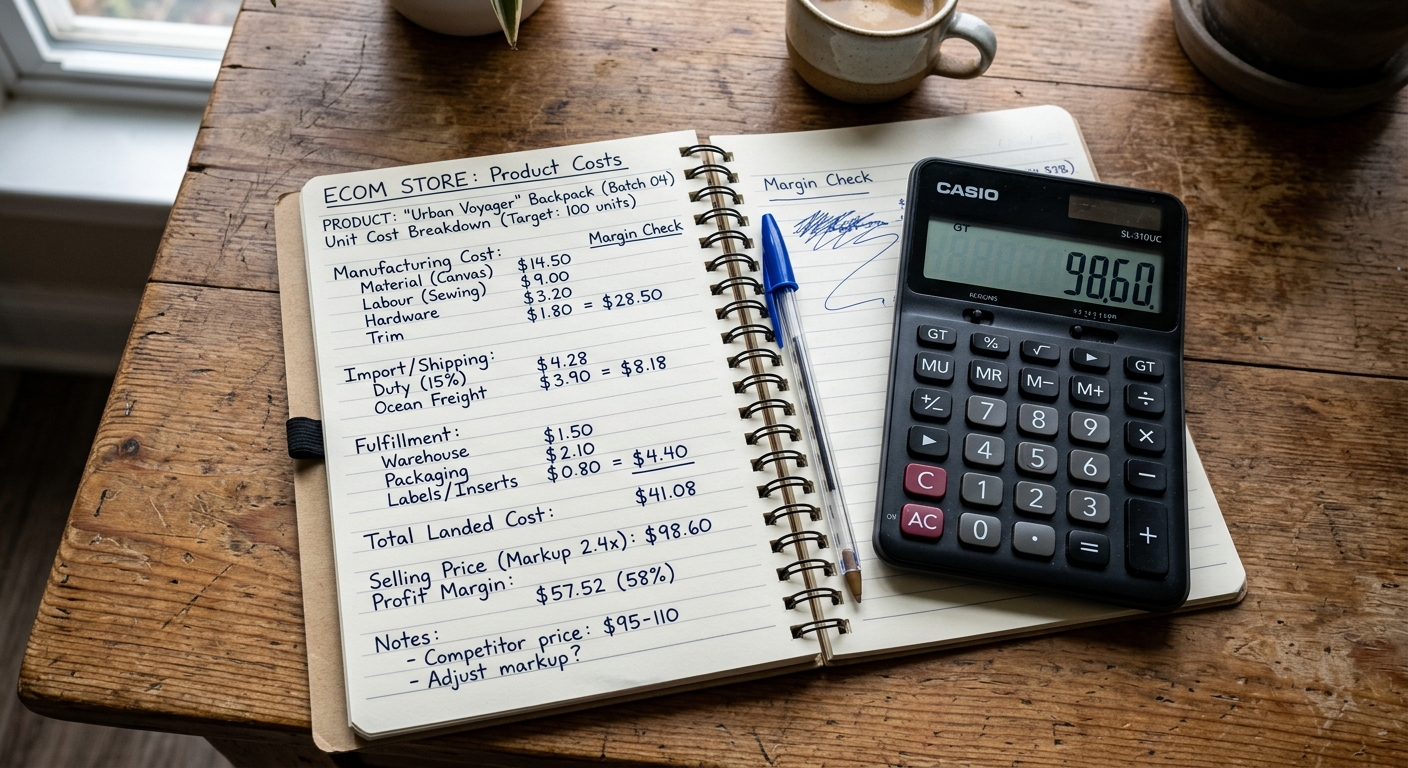 ECOM STORE: Product Costs
PRODUCT: "Urban Voyager" Backpack (Batch 04)
Unit Cost Breakdown (Target: 100 units)
Margin Check
Manufacturing Cost: $14.50
Material (Canvas) $9.00
Labour (Sewing) $3.20
Hardware $1.80 = $28.50
Trim
Import/Shipping: $4.28
Duty (15%) $3.90 = $8.18
Ocean Freight
Fulfillment: $1.50
Warehouse $2.10
Packaging $0.80 = $4.40
Labels/Inserts
$41.08
Total Landed Cost:
Selling Price (Markup 2.4x): $98.60
Profit Margin: $57.52 (58%)
Notes:
- Competitor price: $95-110
- Adjust markup?
Margin Check
CASIO
SL-310UC
GT
98.60.
GT % √ ▶ GT
MU MR M− M+ ÷
+/− 7 8 9 ×
▶ 4 5 6 −
C 1 2 3 +
AC 0 . =